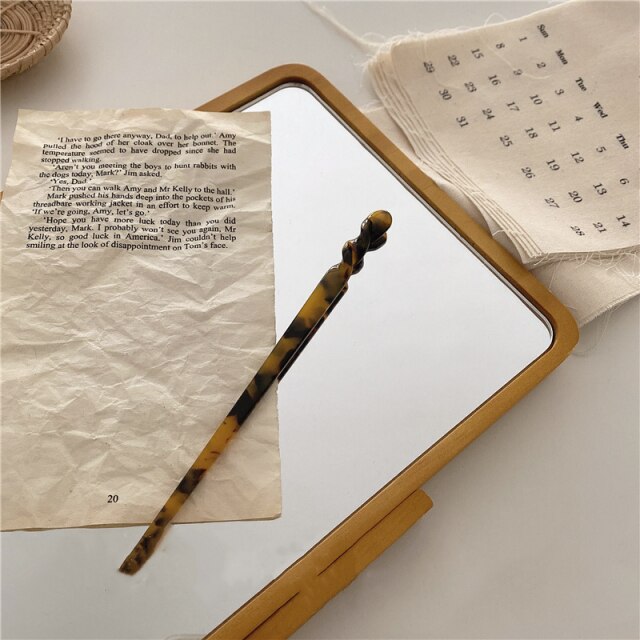 'I have to go there anyway, Dad, to help out.' Amy
pulled the hood of her cloak over her bonnet. The
temperature seemed to have dropped since she had
stopped walking.
'Aren't you meeting the boys to hunt rabbits with
the dogs today, Mark?' Jim asked.
'Yes, Dad.'
'Then you can walk Amy and Mr Kelly to the hall.'
Mark pushed his hands deep into the pockets of his
threadbare working jacket in an effort to keep warm.
'If we're going, Amy, let's go.'
'Hope you have more luck today than you did
yesterday, Mark. I probably won't see you again, Mr
Kelly, so good luck in America.' Jim couldn't help
smiling at the look of disappointment on Tom's face.
20
Sun Mon Tue Wed Thu
1 2 3
8 9 10 11 12 13 14
15 16 17 18 19 20 21
22 23 24 25 26 27 28
29 30 31